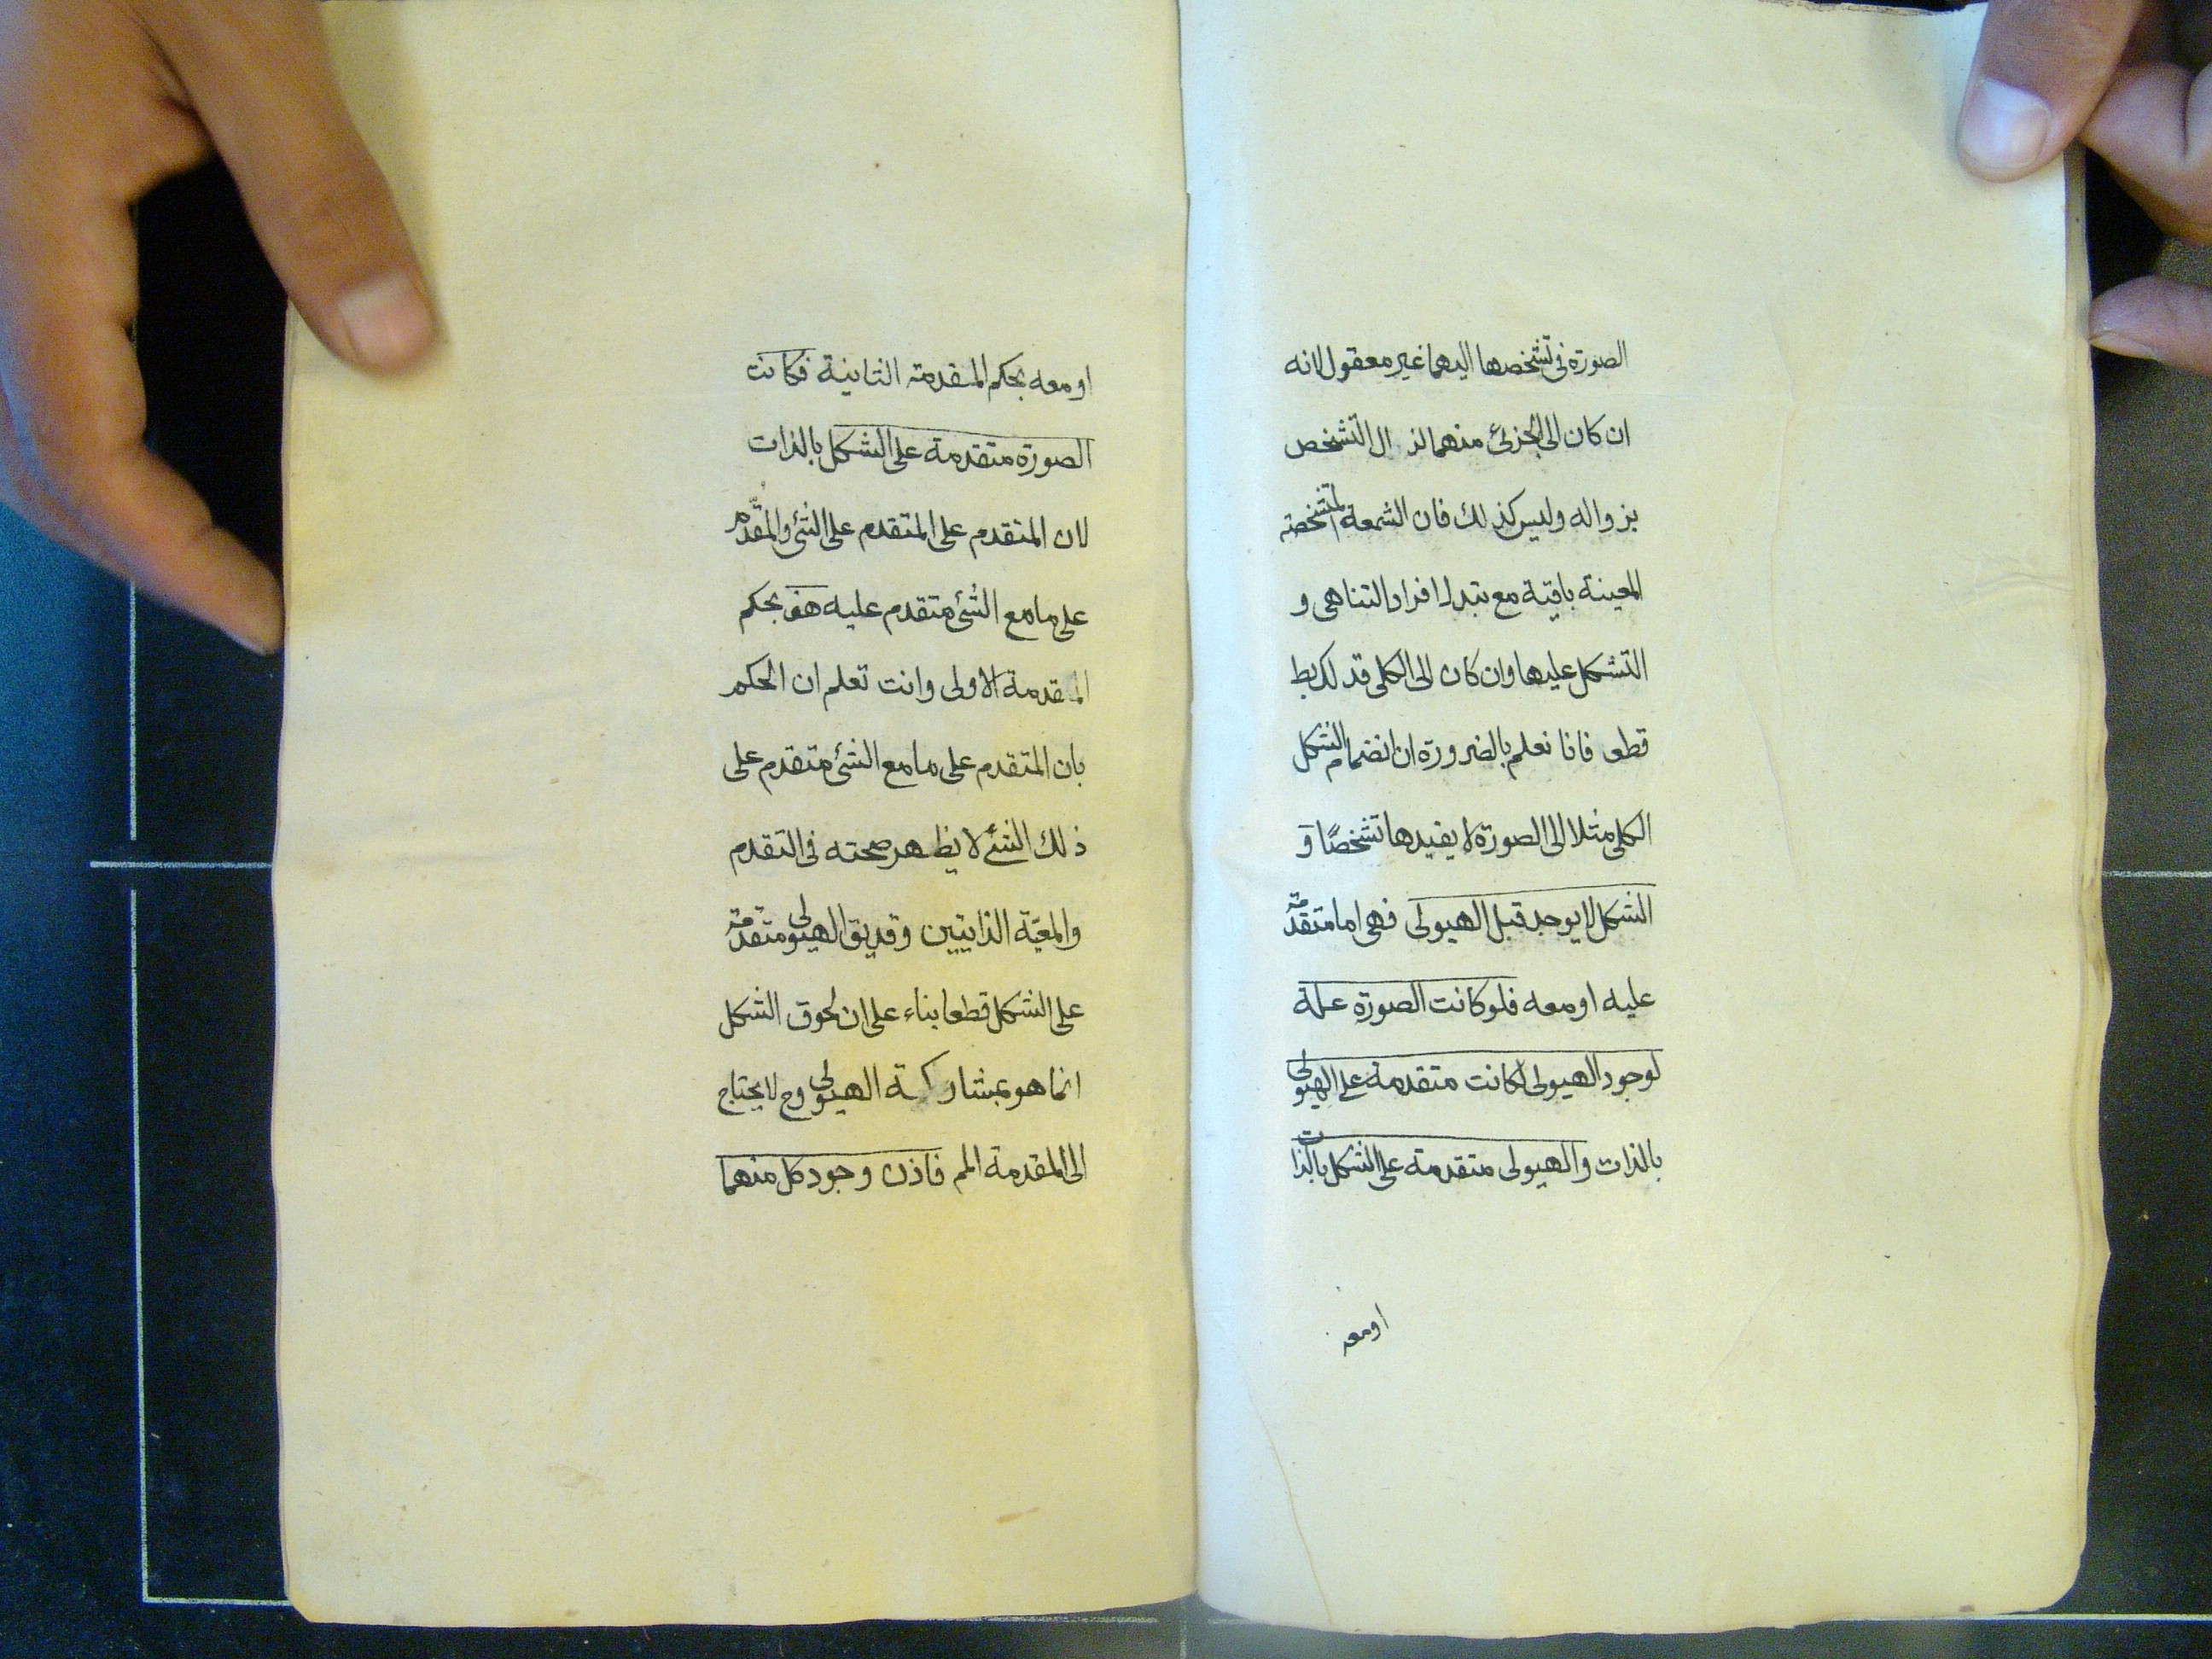 الصورة فى تشخصها اليهما غير معقول لانه
ان كان الى الجزئ منهما لز ال التشخص
بزواله وليس كذلك فان الشمعة المتشخصة
المعينة باقية مع تبدل افراد التناهى و
التشكل عليها وان كان الى الكلى
قطعا فانا نعلم بالضرورة ان انضمام الشكل
الكلى مثلا الى الصورة لا يفيدها تشخصًا و
الشكل لا يوجد قبل الهيولى فهى اما متقدمة
عليه او معه فلو كانت الصورة علة
لوجود الهيولى لكانت متقدمة على الهيولى
بالذات والهيولى متقدمة على الشكل بالذات
او معه
او معه بحكم المقدمة الثانية فكانت
الصورة متقدمة على الشكل بالذات
لان المتقدم على المتقدم على الشئ والمقدم
على ما مع الشئ متقدم عليه هف بحكم
المقدمة الاولى وانت تعلم ان الحكم
بان المتقدم على ما مع الشئ متقدم على
ذلك الشئ لا يظهر صحته فى التقدم
والمعيّة الذاتيين وقد يق الهيولى متقدمة
على الشكل قطعا بناء على ان لحوق الشكل
انما هو بمشاركة الهيولى وح لا يحتاج
الى المقدمة المم فاذن وجود كل منهما